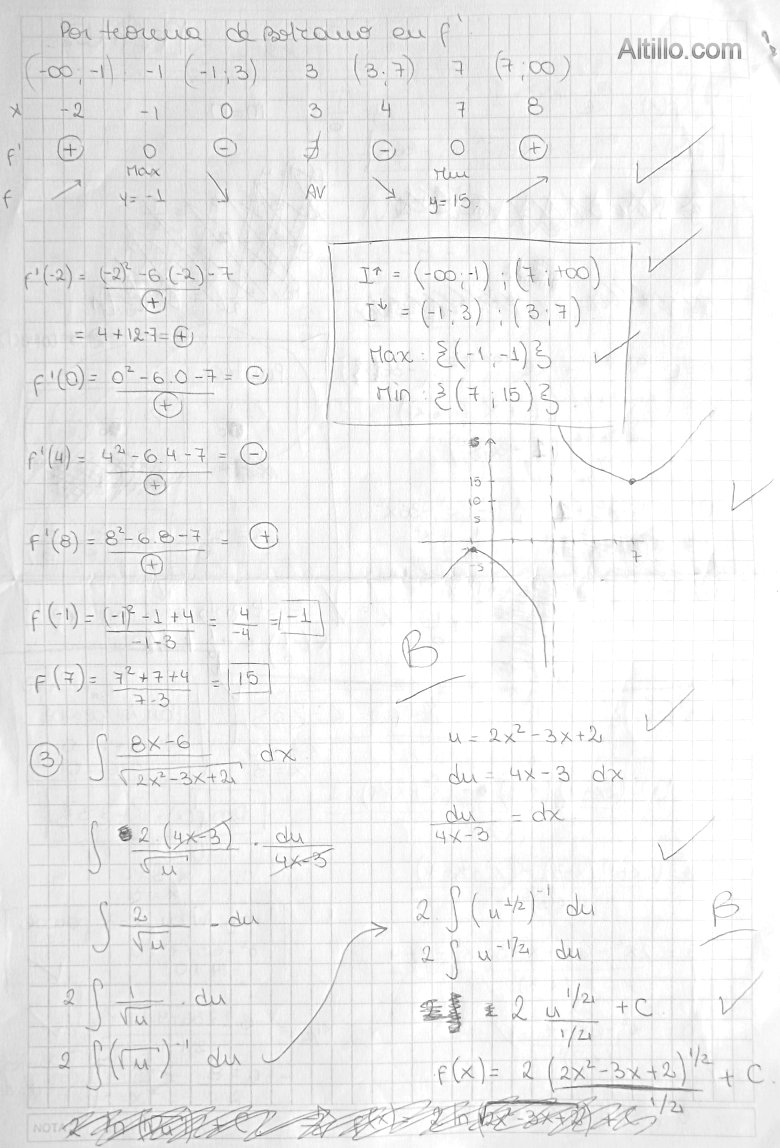 Por teorema de Bolzano en f'
Altillo.com
(-∞; -1) -1 (-1; 3) 3 (3; 7) 7 (7; ∞)
x -2 -1 0 3 4 7 8
f' + 0 - ∄ - 0 +
Max Min
f ↗ y=-1 ↘ AV ↘ y=15 ↗
f'(-2) = (-2)² -6.(-2) -7 / +
= 4+12-7 = +
f'(0) = 0² -6.0 -7 / + = -
f'(4) = 4² -6.4 -7 / + = -
f'(8) = 8² -6.8 -7 / + = +
f(-1) = (-1)² -1 +4 / -1-3 = 4/-4 = -1
f(7) = 7² +7 +4 / 7-3 = 15
I↑ = (-∞; -1) ; (7; +∞)
I↓ = (-1; 3) ; (3; 7)
Max: {(-1; -1)}
Min: {(7; 15)}
15
10
5
7
-5
B
3 ∫ 8x-6 / √2x²-3x+2 dx
∫ 2 (4x-3) / √u · du / 4x-3
∫ 2 / √u · du
2 ∫ 1 / √u · du
2 ∫ (√u)⁻¹ du
u = 2x² -3x+2
du = 4x-3 dx
du / 4x-3 = dx
2 ∫ (u^1/2)⁻¹ du
2 ∫ u^-1/2 du
B
2 u^1/2 / 1/2 + C
f(x) = 2 (2x² -3x+2)^1/2 / 1/2 + C
NOTA